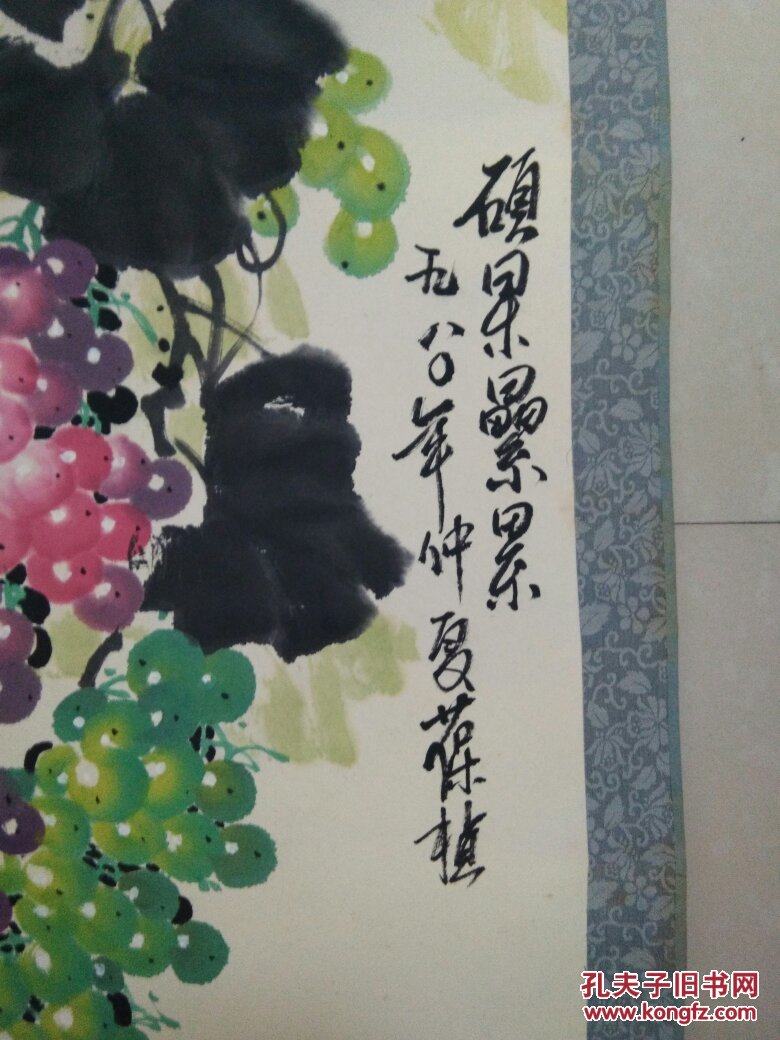 硕果纍累
九八〇年仲夏葆桂
孔夫子旧书网
www.kongfz.com